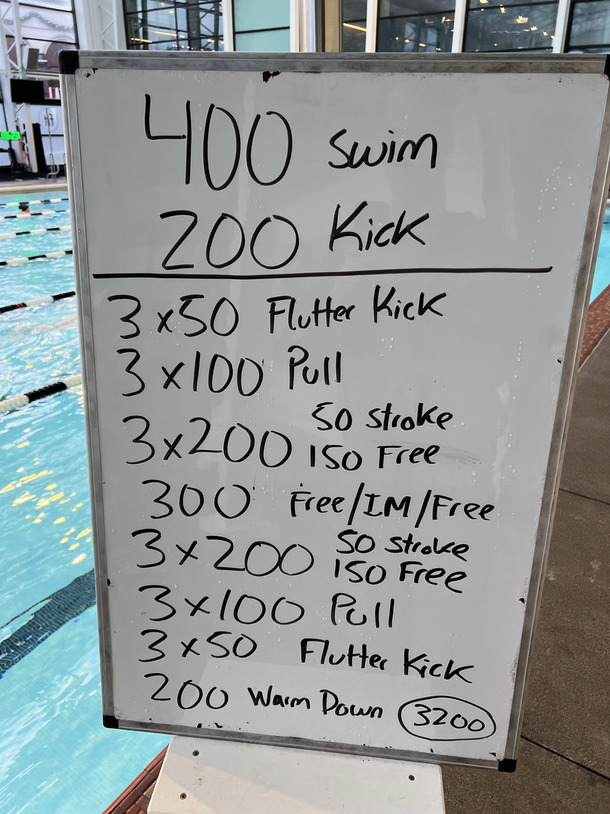 400 Swim
200 Kick
3x50 Flutter Kick
3x100 Pull
3x200 50 Stroke
150 Free
300 Free/IM/Free
3x200 50 Stroke
150 Free
3x100 Pull
3x50 Flutter Kick
200 Warm Down 3200